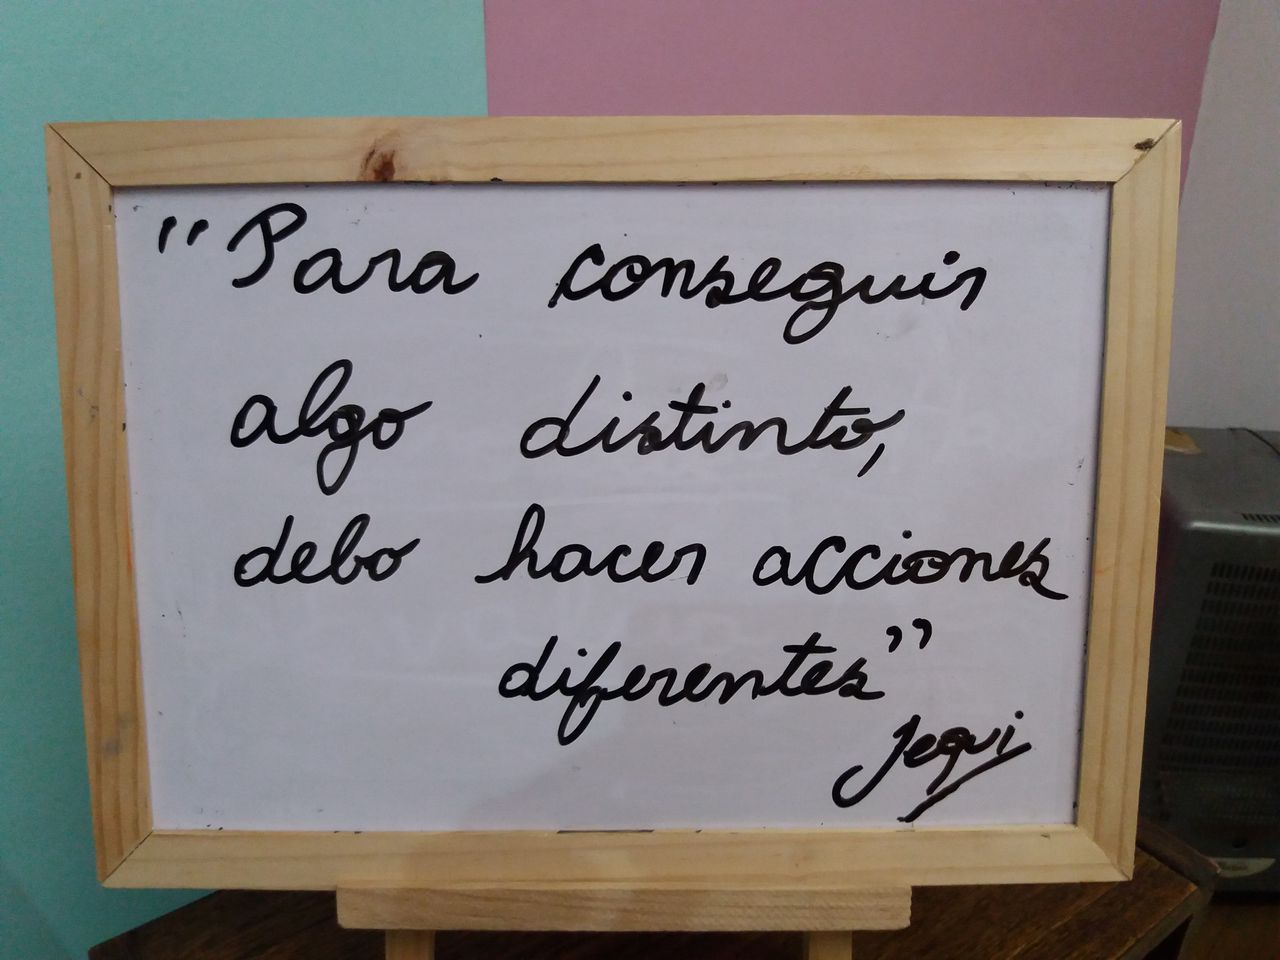 "Para conseguir
algo distinto,
debo hacer acciones
diferentes"
Jequi